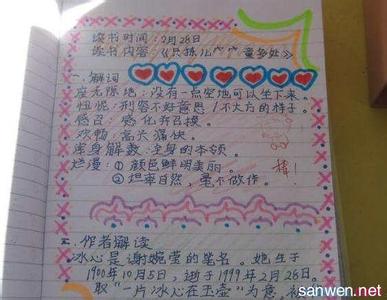 读书时间：2月28日
读书内容《只拣儿童多处》
一、解词
座无隙地：没有一点空地可以坐下来。
忸怩：形容不好意思/不大方的样子。
感召：感化和召换。
欢畅：高兴痛快。
浑身解数：全身的本领。
烂漫：①颜色鲜明美丽。
②坦率自然，毫不做作。
棒！
二、作者解读
冰心是谢婉莹的笔名。她生于
1900年10月5日，逝于1999年2月28日。
取"一片冰心在玉壶"为意，被
sanwen.net